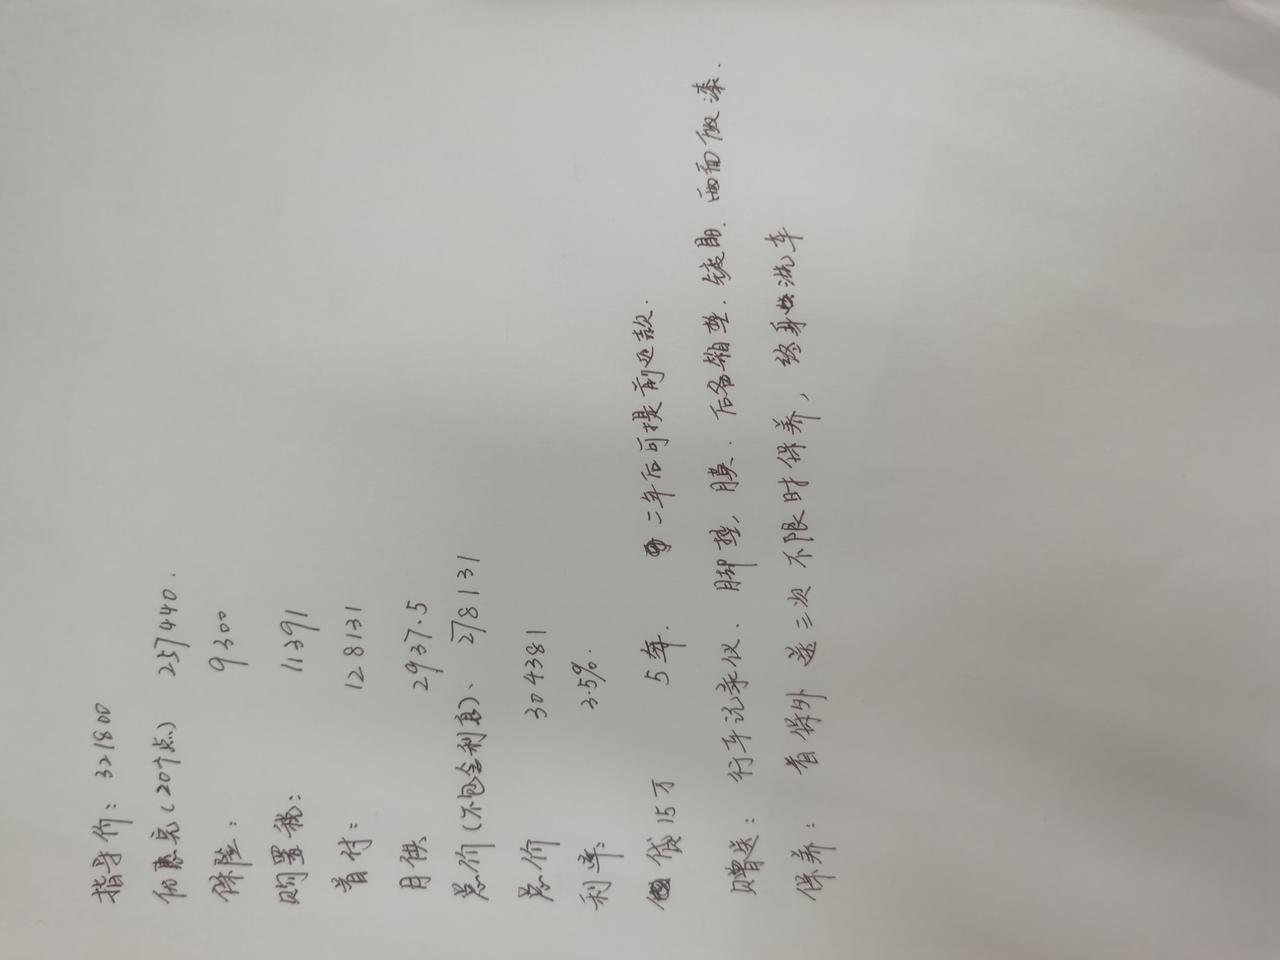 指导价：321800
优惠完（20个点） 257440.
保险： 9300
购置税： 11391
首付： 128131
月供 2937.5
总价（不包含利息）、278131
总价 304381
利率： 3.5%.
贷15万 5年. 二年后可提前还款.
赠送： 行车记录仪. 脚垫，膜. 后备箱垫. 镀晶. 两面做漆.
保养： 首保外 送三次不限时保养，终身洗车